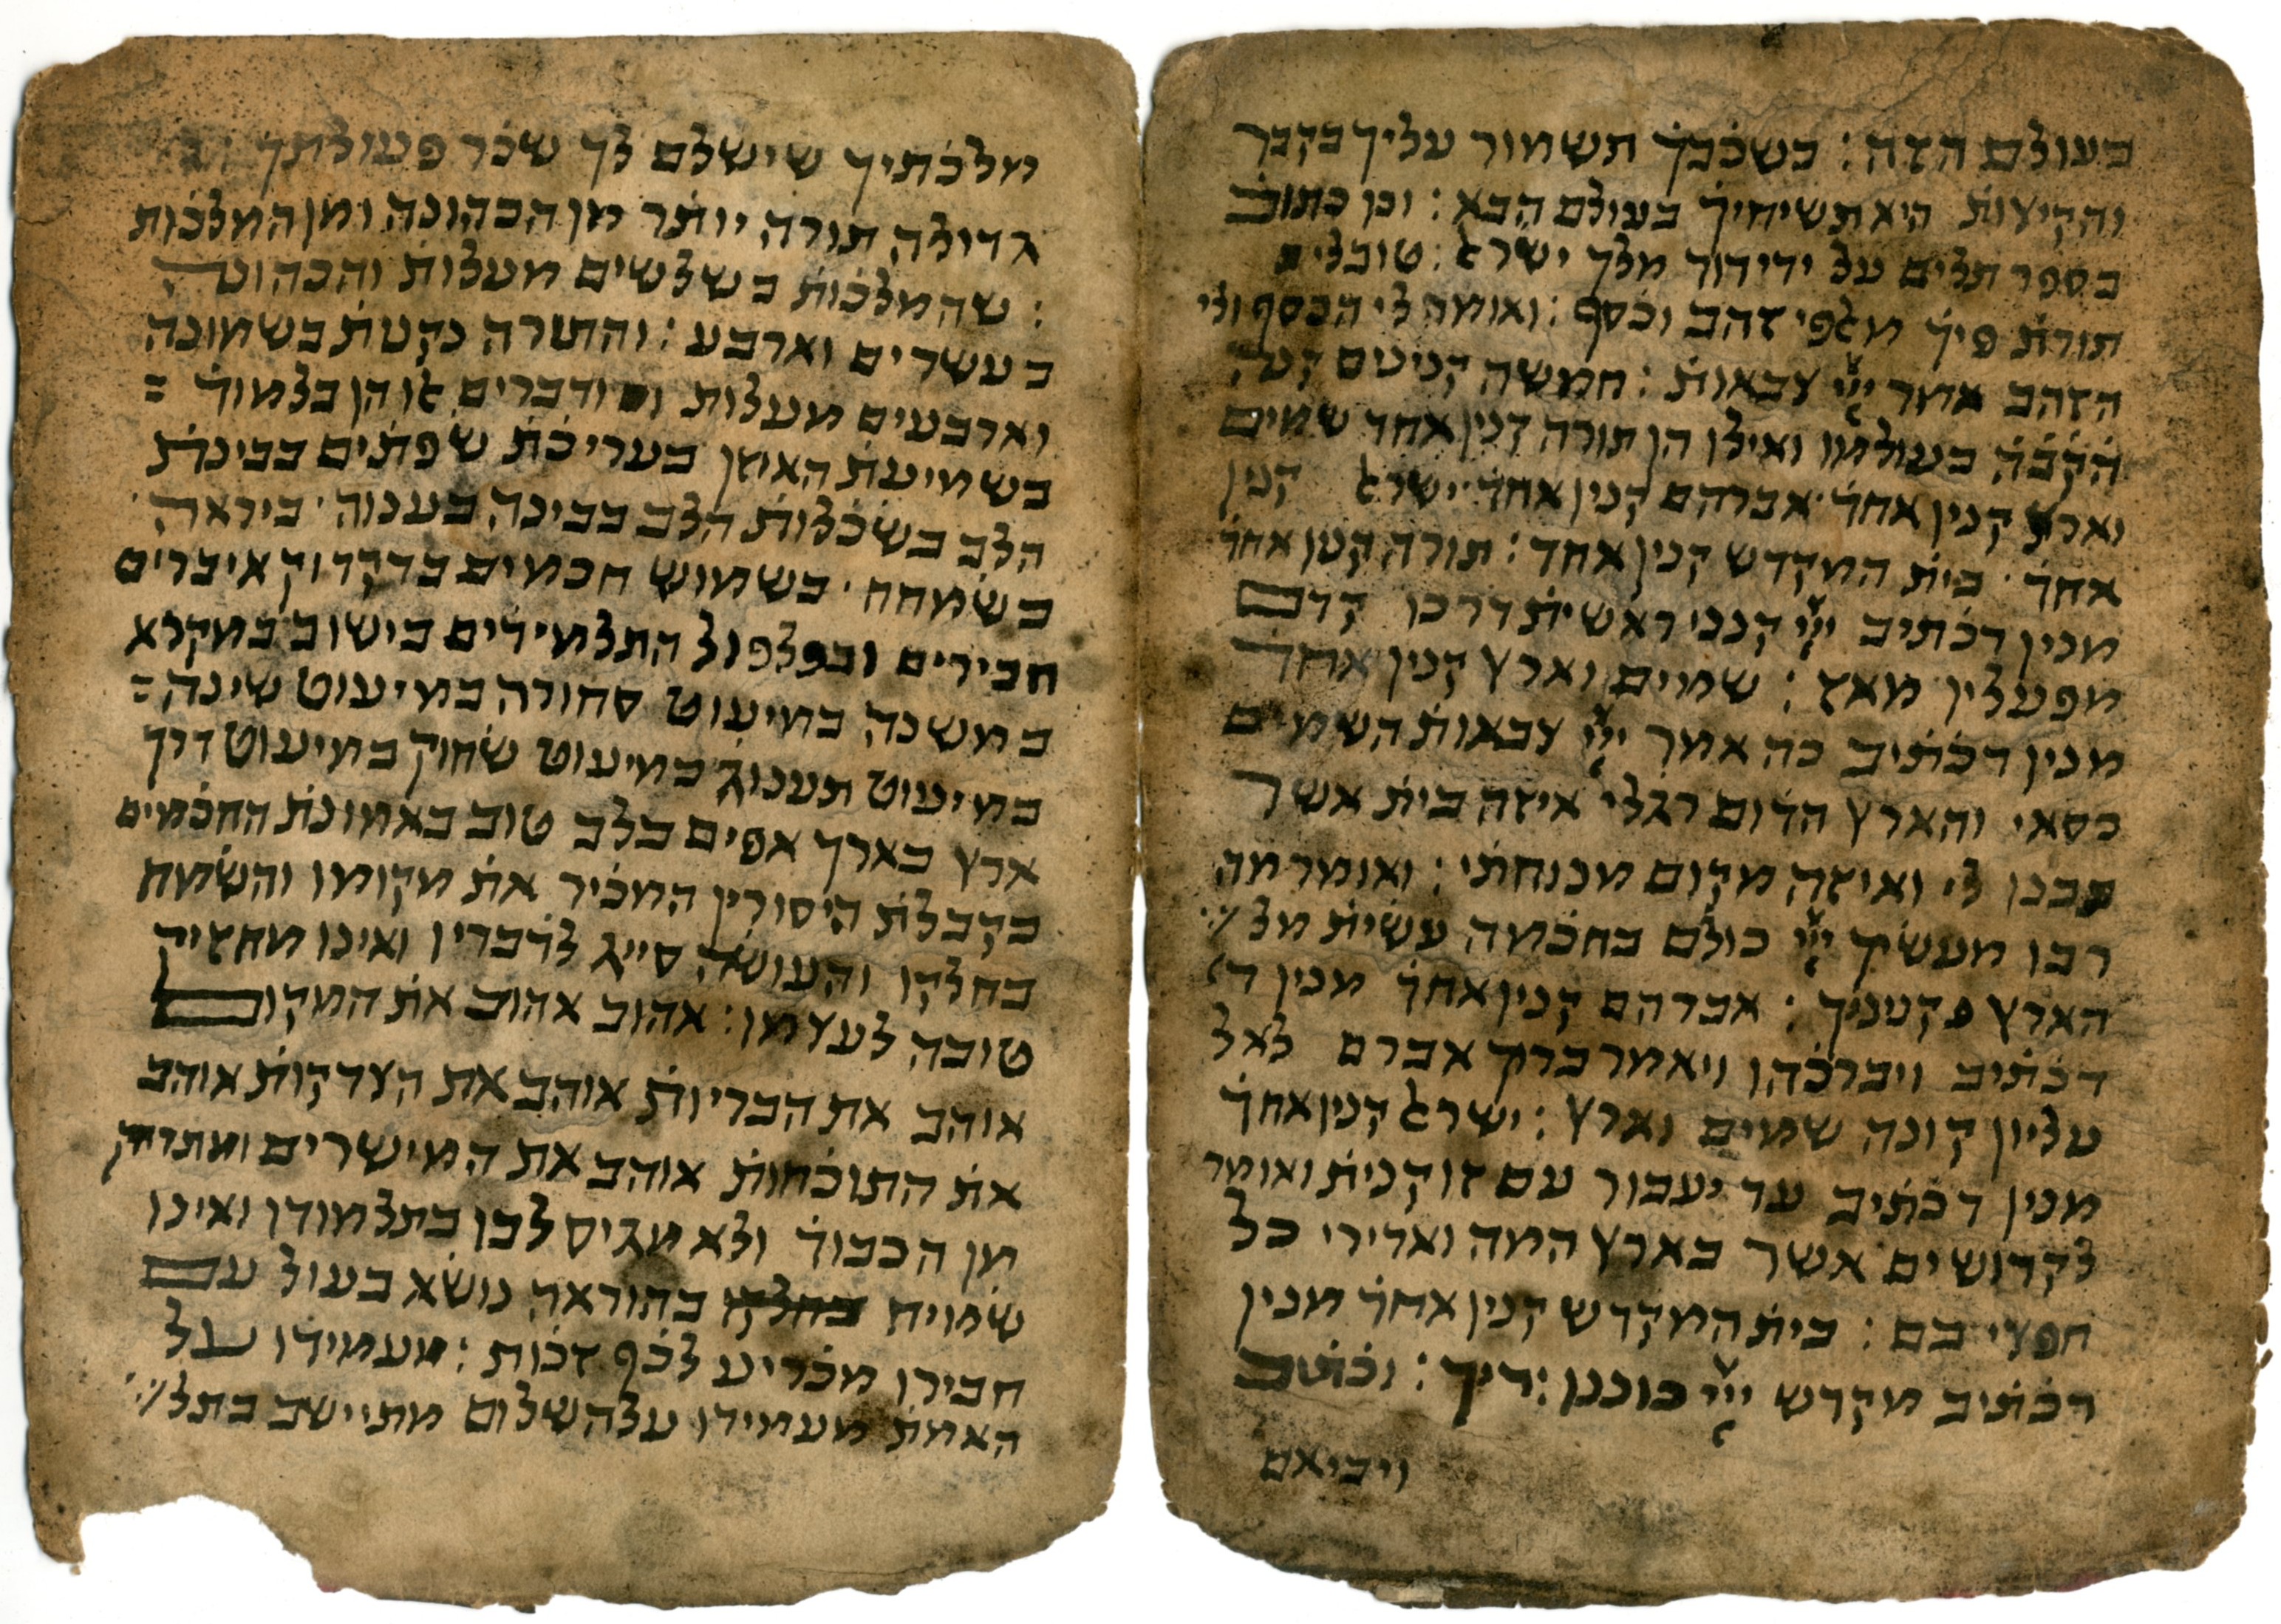 בעולם הזה : בשכבך תשמור עליך בקבר
והקיצות היא תשיחיך בעולם הבא : וכן כתוב
בספר תלים על ידי דוד מלך ישרﭏ : טוב לי
תורת פיך מﭏפי זהב וכסף : ואומר לי הכסף ולי
הזהב אמר ייי צבאות : חמשה קנינים קנה
הקבה בעולמו ואילו הן תורה קנין אחד שמים
וארץ קנין אחד · אברהם קנין אחד · ישרﭏ קנין
אחד · בית המקדש קנין אחד : תורה קנין אחד
מנין דכתיב ייי קנני ראשית דרכו קדם
מפעליו מאז : שמים וארץ קנין אחד
מנין דכתיב כה אמר ייי צבאות השמים
כסאי והארץ הדום רגלי איזה בית אשר
תבנו לי ואיזה מקום מנוחתי : ואומר מה
רבו מעשיך ייי כולם בחכמה עשית מל׳
הארץ קניניך : אברהם קנין אחד מנין ד׳
דכתיב ויברכהו ויאמר ברוך אברם לאל
עליון קונה שמים וארץ : ישרﭏ קנין אחד
מנין דכתיב עד יעבור עם זו קנית ואומר
לקדושים אשר בארץ המה ואדירי כל
חפצי בם : בית המקדש קנין אחד מנין
דכתיב מקדש ייי כוננו ידיך : וכתוב
ויביאם
מלכתיך שישלם לך שכר פעולתך :
גדולה תורה יותר מן הכהונה ומן המלכות
: שהמלכות בשלשים מעלות והכהונה
בעשרים וארבע : והתורה נקנית בשמונה
וארבעים מעלות ודברים ﭏו הן בלמוד :
בשמיעת האוזן בעריכת שפתים בבינת
הלב בשכלות הלב בבינה בענוה · ביראה ·
בשמחה · בשמוש חכמים בדקדוק איברים
חבירים ובפלפול התלמידים בישוב במקרא
במשנה במיעוט סחורה במיעוט שינה :
במיעוט תענוג במיעוט שחוק במיעוט דרך
ארץ בארך אפים בלב טוב באמונת החכמים
בקבלת היסורין המכיר את מקומו והשמח
בחלקו והעושה סייג לדבריו ואינו מחזיק
טובה לעצמו : אהוב אהוב את המקום
אוהב את הבריות אוהב את הצדקות אוהב
את התוכחות אוהב את המישרים ומתרחק
מן הכבוד ולא מגיס לבו בתלמודו ואינו
שמיח בהוראה נושא בעול עם
חבירו מכריע לכף זכות : מעמידו על
האמת מעמידו על השלום מתיישב בתל׳